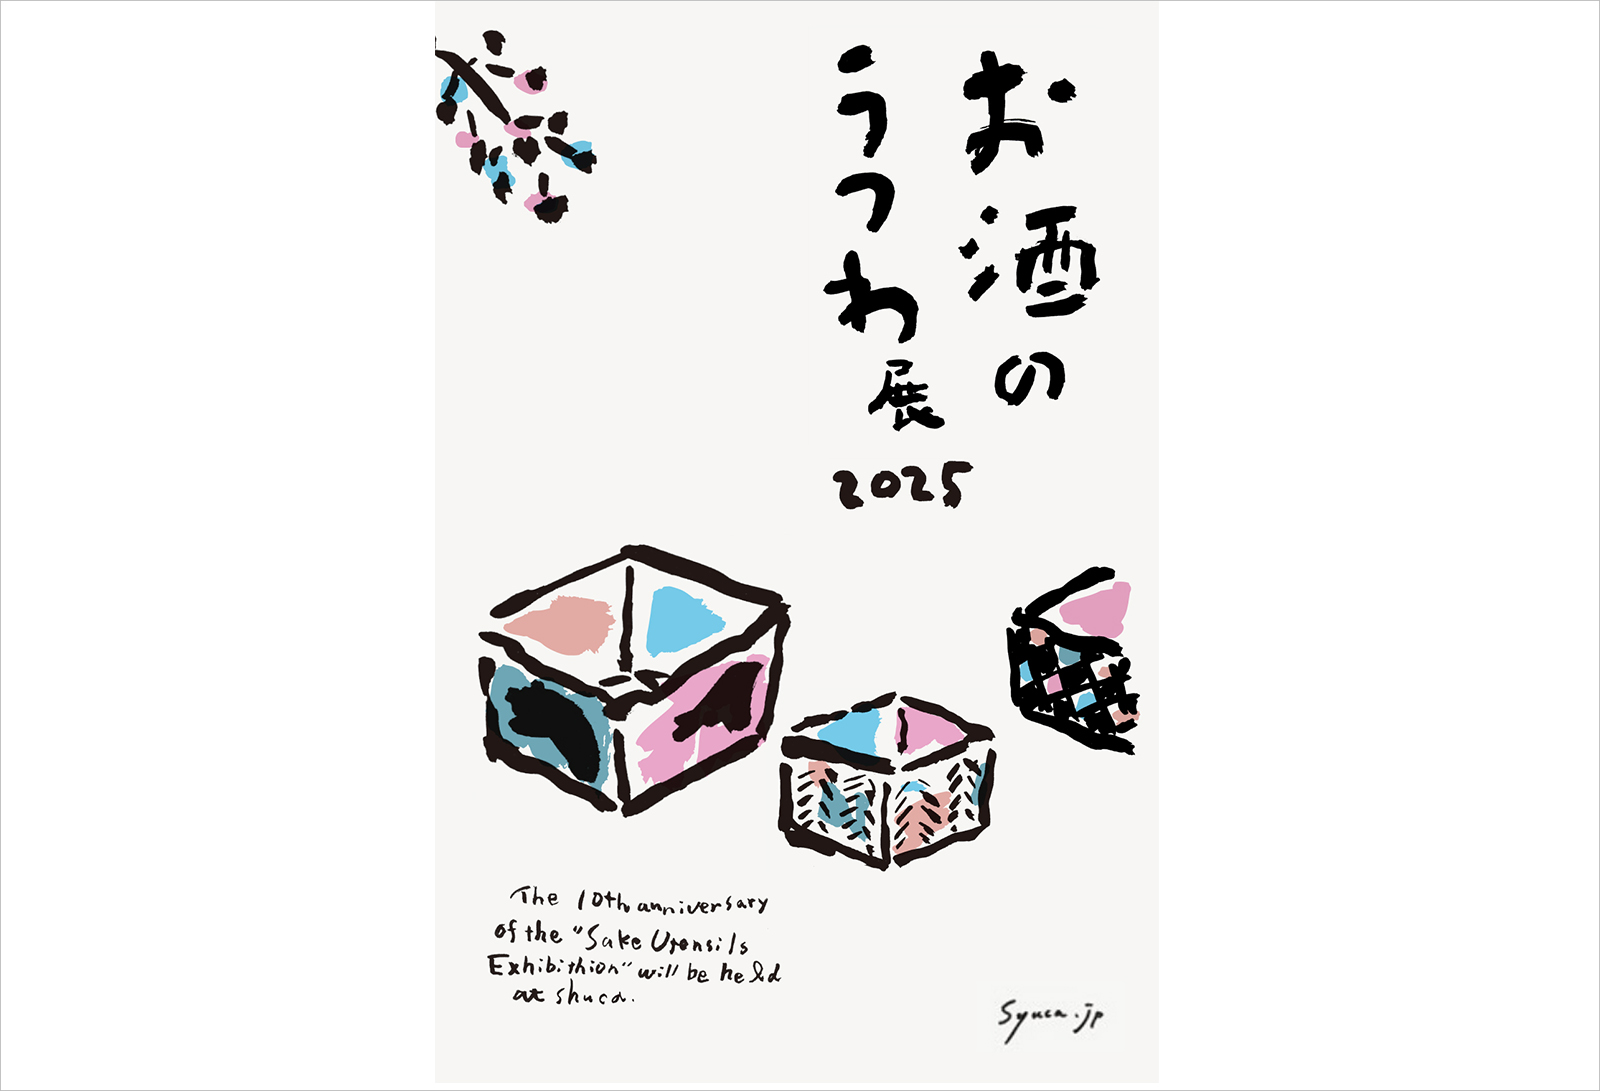 お酒の
うつわ展
2025
The 10th anniversary
of the "Sake Utensils
Exhibithion" will be held
at shuca.
Syuca.jp